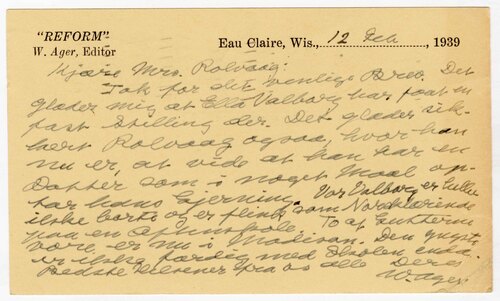 "REFORM"
W. Ager, Editor
Eau Claire, Wis., 12 Feb , 1939
Kjære Mrs. Rolvaag:
Tak for dit venlige Brev. Det
glæder mig at Ella Valborg har faaet en
fast Stilling der. Det glæder sik-
kert Rolvaag ogsaa, hvor han
nu er, at vide at han har en
Datter som i noget Maal op-
tar hans Gjerning. Vor Valborg er heller
ikke borte og er flink som Norsklærerinde
paa en Aftenskole. To af Gutterne
vore, er nu i Madison. Den yngste
er ikke færdig med Skolen enda.
Bedste Hilsener fra os alle Deres
W. Ager